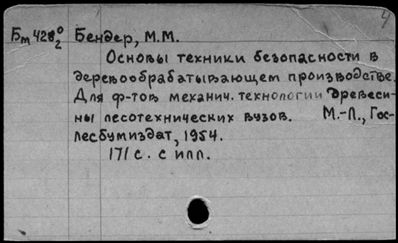 4
Бт 428⁰₂ Бендер, М.М.
Основы техники безопасности в
деревообрабатывающем производстве.
Для ф-тов механич. технологии древеси-
ны лесотехнических вузов. М.-Л., Гос-
лесбумиздат, 1954.
171 с. с илл.